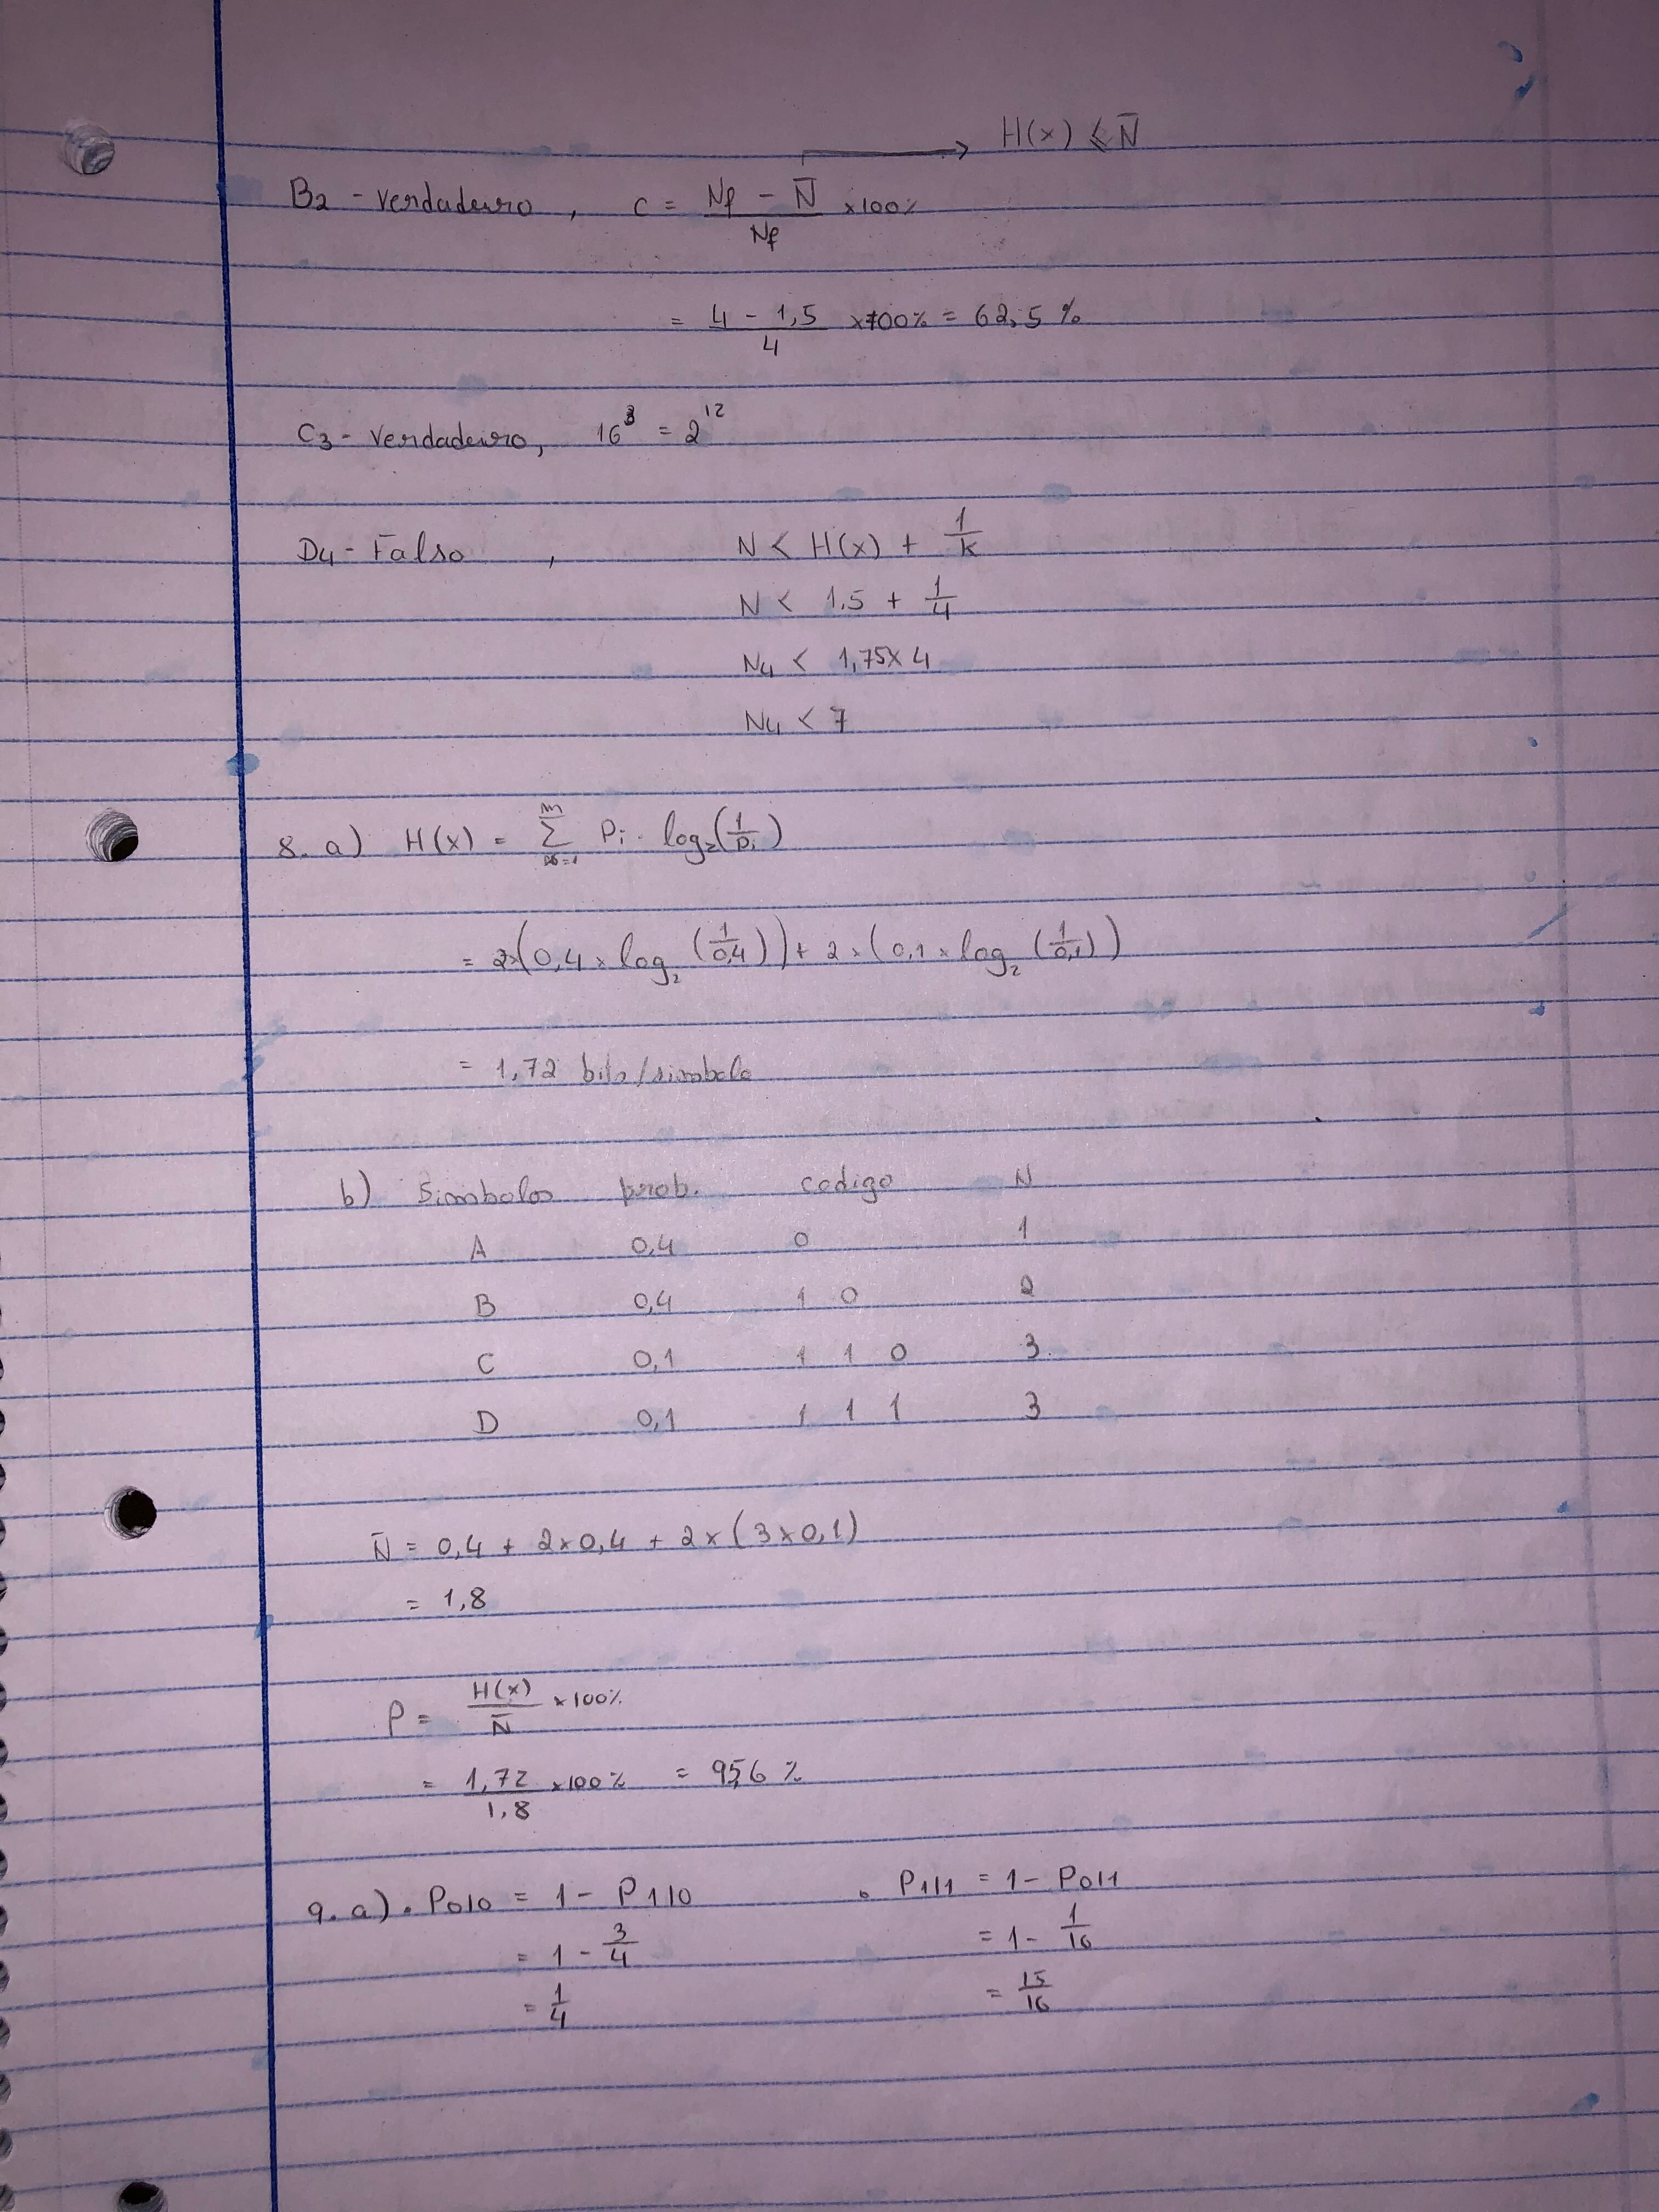 H(x) ≤ N̄
B2 - verdadeiro , c = (Nf - N̄)/Nf ×100%
= (4 - 1,5)/4 ×100% = 62,5 %
C3 - verdadeiro, 16³ = 2¹²
D4 - Falso , N < H(x) + 1/k
N < 1,5 + 1/4
N4 < 1,75×4
N4 < 7
8. a) H(x) = Σ Pi · log₂(1/Pi)
= 2×(0,4 × log₂ (1/0,4)) + 2 × (0,1 × log₂ (1/0,1))
= 1,72 bits/simbolo
b) Simbolos prob. codigo N
A 0,4 0 1
B 0,4 1 0 2
C 0,1 1 1 0 3
D 0,1 1 1 1 3
N̄ = 0,4 + 2×0,4 + 2×(3×0,1)
= 1,8
ρ = H(x)/N̄ ×100%
= 1,72/1,8 ×100% = 95,6 %
9. a) • P0|0 = 1 - P1|0 • P1|1 = 1 - P0|1
= 1 - 3/4 = 1 - 1/16
= 1/4 = 15/16